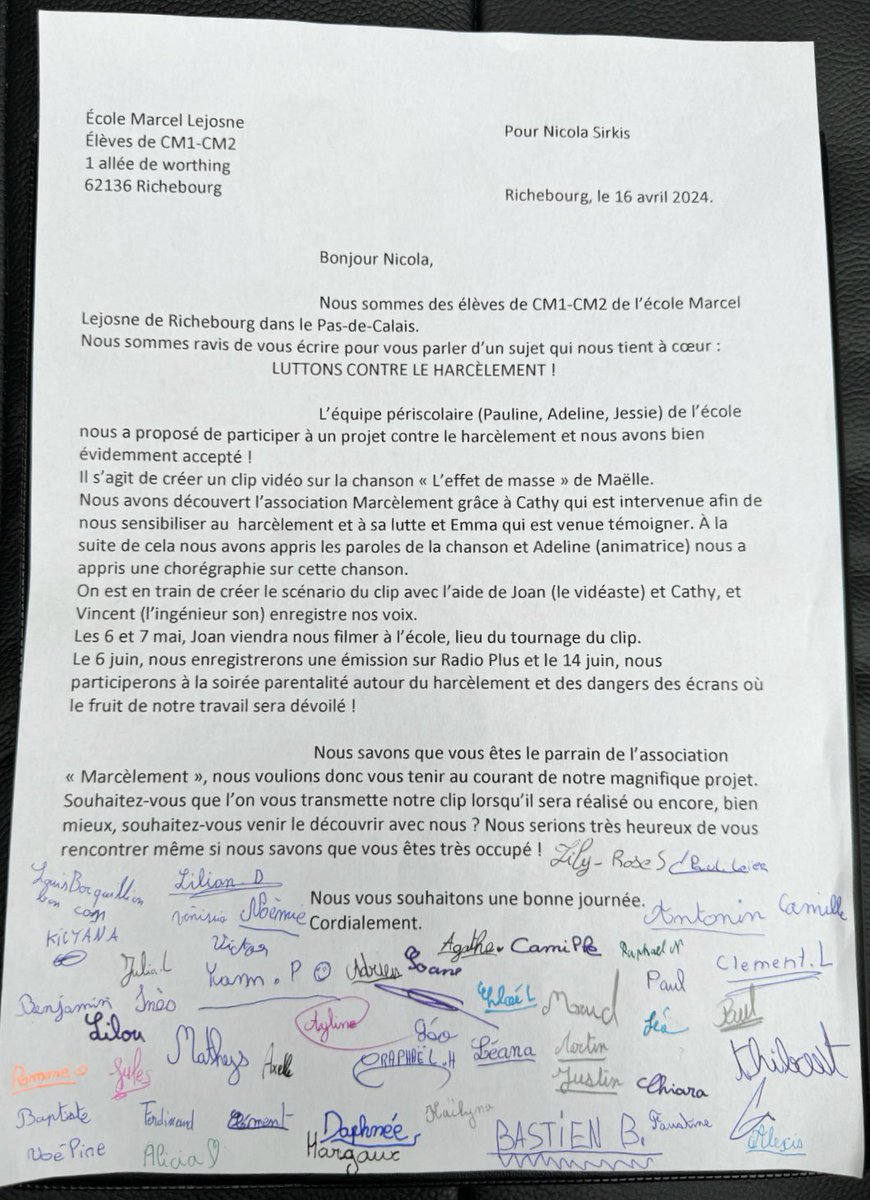 École Marcel Lejosne
Élèves de CM1-CM2
1 allée de worthing
62136 Richebourg
Pour Nicola Sirkis
Richebourg, le 16 avril 2024.
Bonjour Nicola,
Nous sommes des élèves de CM1-CM2 de l'école Marcel
Lejosne de Richebourg dans le Pas-de-Calais.
Nous sommes ravis de vous écrire pour vous parler d'un sujet qui nous tient à cœur :
LUTTONS CONTRE LE HARCÈLEMENT !
L'équipe périscolaire (Pauline, Adeline, Jessie) de l'école
nous a proposé de participer à un projet contre le harcèlement et nous avons bien
évidemment accepté !
Il s'agit de créer un clip vidéo sur la chanson « L'effet de masse » de Maëlle.
Nous avons découvert l'association Marcèlement grâce à Cathy qui est intervenue afin de
nous sensibiliser au harcèlement et à sa lutte et Emma qui est venue témoigner. À la
suite de cela nous avons appris les paroles de la chanson et Adeline (animatrice) nous a
appris une chorégraphie sur cette chanson.
On est en train de créer le scénario du clip avec l'aide de Joan (le vidéaste) et Cathy, et
Vincent (l'ingénieur son) enregistre nos voix.
Les 6 et 7 mai, Joan viendra nous filmer à l'école, lieu du tournage du clip.
Le 6 juin, nous enregistrerons une émission sur Radio Plus et le 14 juin, nous
participerons à la soirée parentalité autour du harcèlement et des dangers des écrans où
le fruit de notre travail sera dévoilé !
Nous savons que vous êtes le parrain de l'association
« Marcèlement », nous voulions donc vous tenir au courant de notre magnifique projet.
Souhaitez-vous que l'on vous transmette notre clip lorsqu'il sera réalisé ou encore, bien
mieux, souhaitez-vous venir le découvrir avec nous ? Nous serions très heureux de vous
rencontrer même si nous savons que vous êtes très occupé !
Lily-Rose S
Louis
Lilian. D
Nous vous souhaitons une bonne journée.
Cordialement.
Noémie
Antonin
Camille
KILYANA
Victor
Agathe
Camille
Raphael N
Julia.L
Yann.P
Soane
Paul
Clement.L
Benjamin
Inès
Chloé L
Maud
Lilou
Ayline
Léa
Paul
Mathys
Axelle
RAPHAËL.H
Léana
Martin
Thibaut
Romane
Jules
Justin
Chiara
Baptiste
Ferdinand
Clément
Daphnée
Kaïlyna
BASTIEN B.
Faustine
Noé Pine
Alicia
Margaux
Alexis